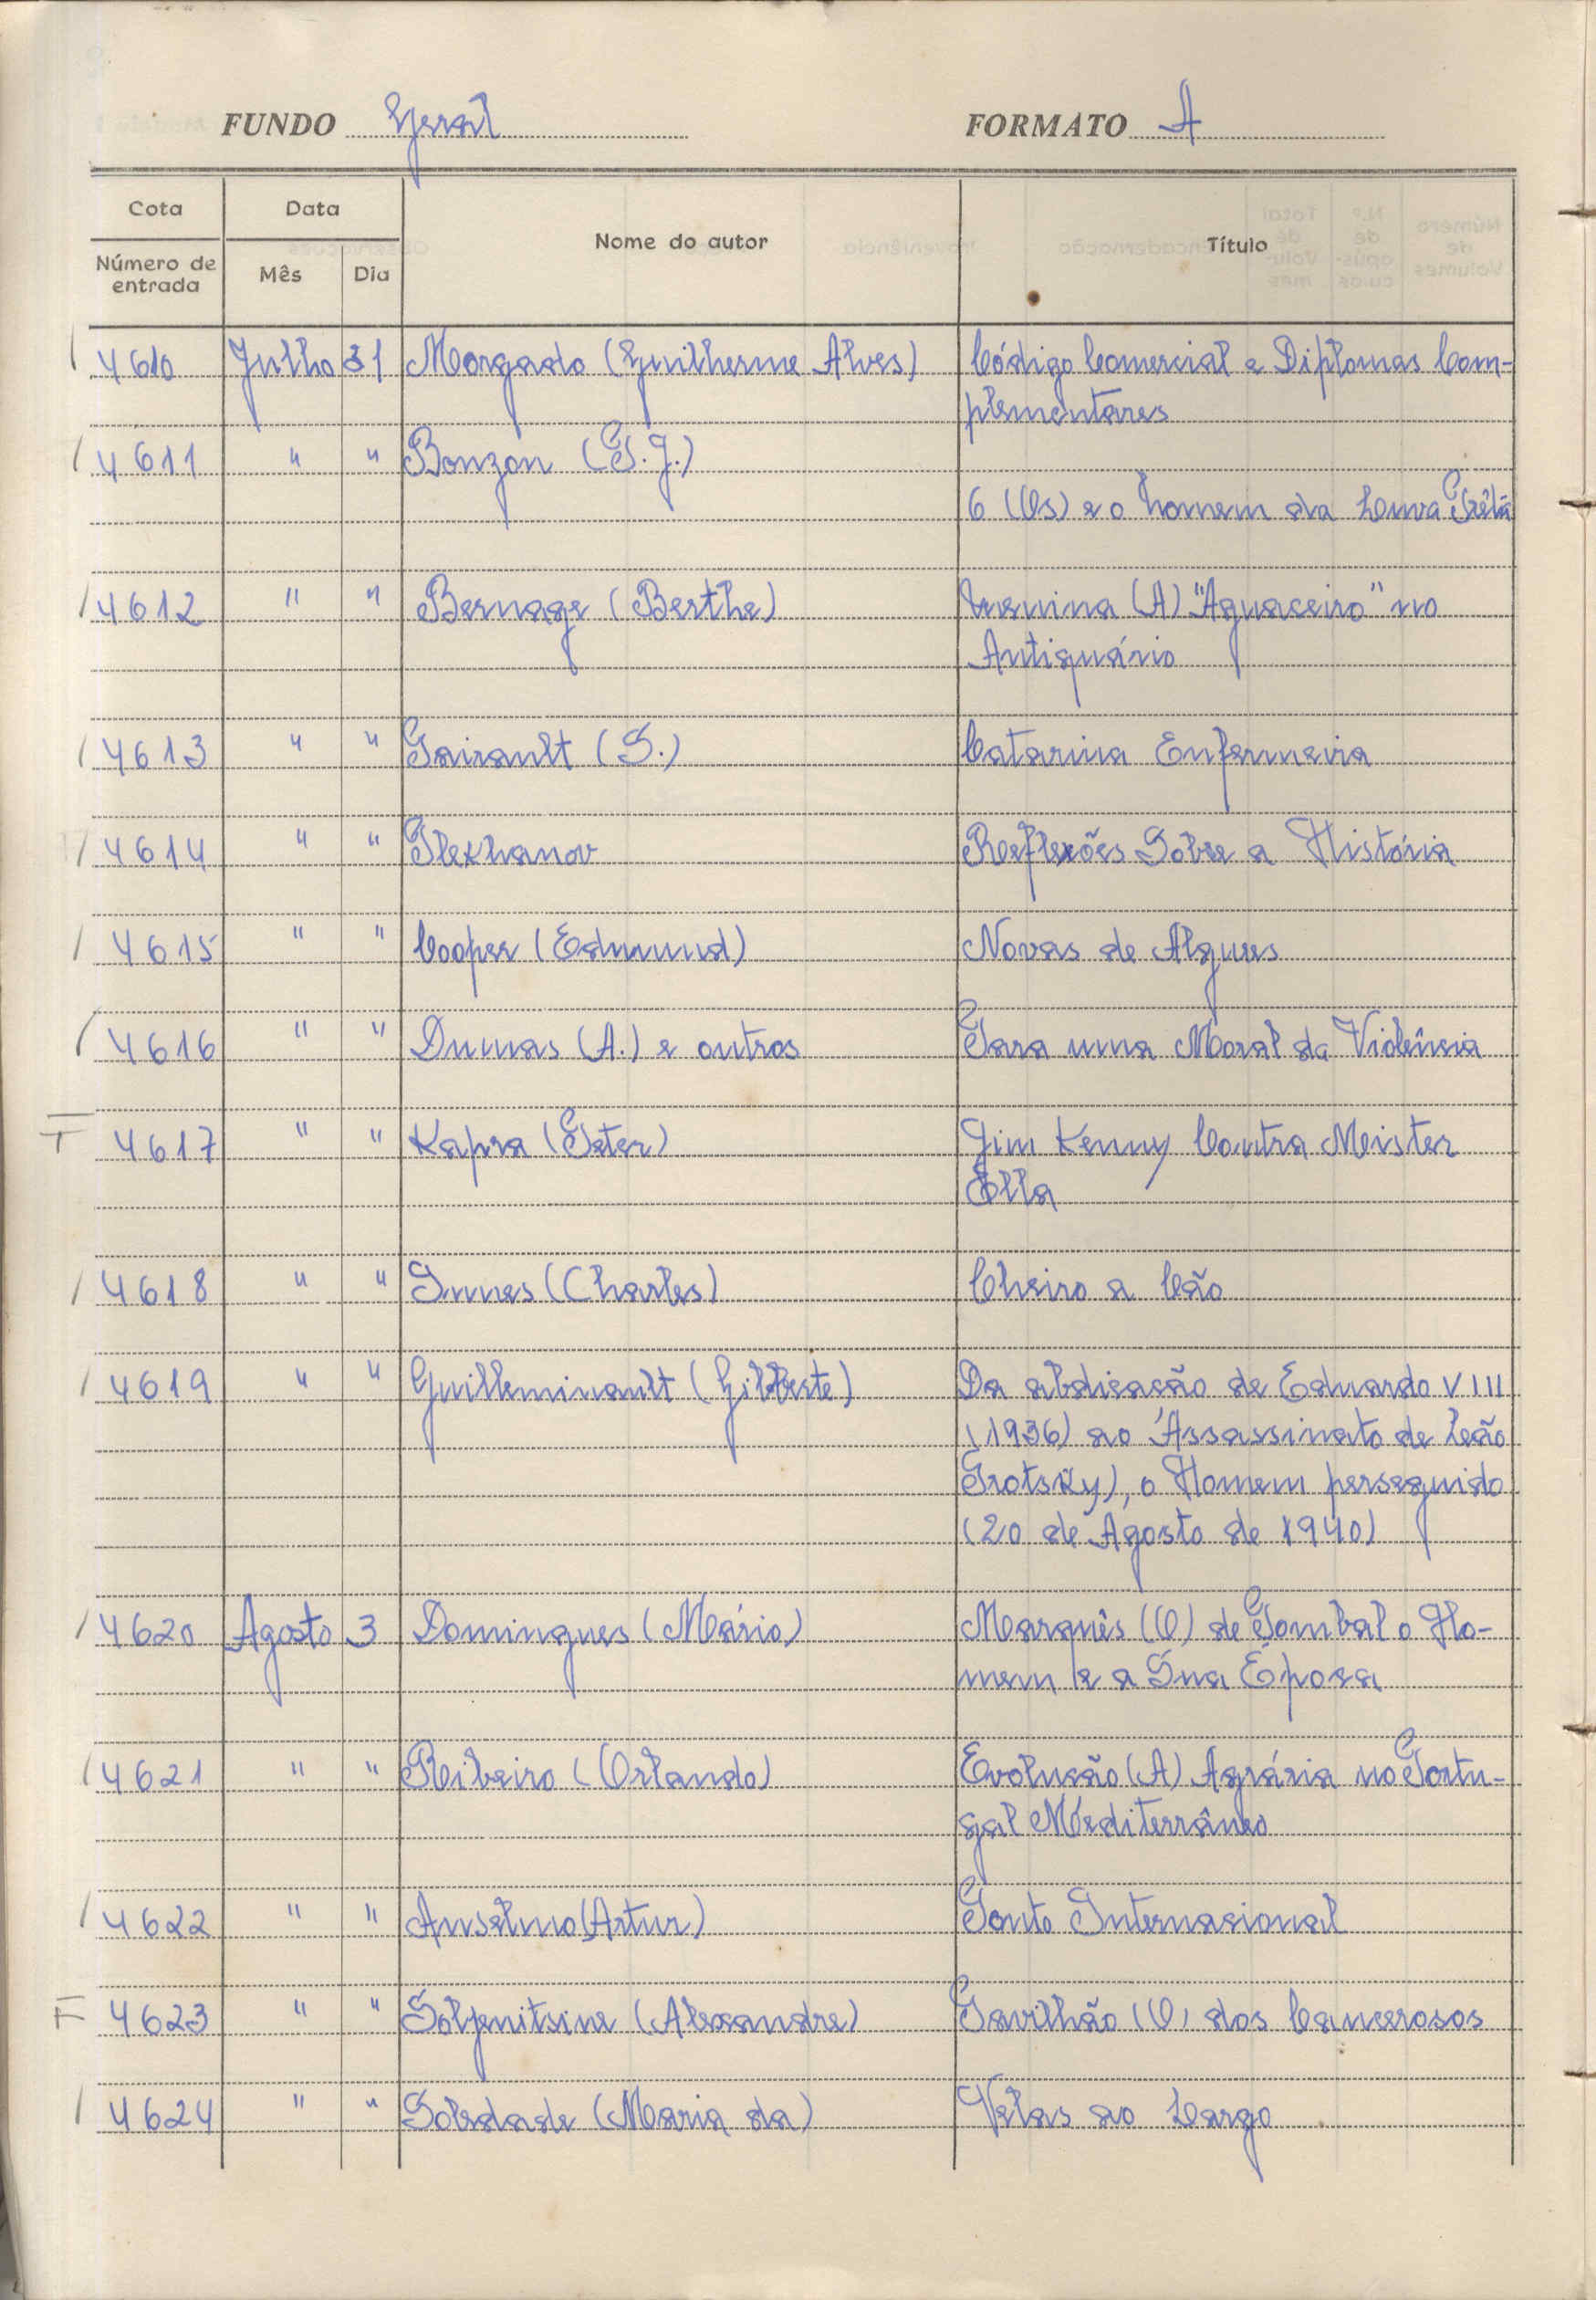 FUNDO Geral FORMATO A
Cota Data Nome do autor Título
Número de entrada Mês Dia
4610 Julho 31 Morgado (Guilherme Alves) Código Comercial e Diplomas Com-
plementares
4611 " " Bonzon (P. J.)
6 (Os) e o homem da Luva Prêta
4612 " " Bernage (Berthe) menina (A) "Aguaceiro" no
Antiquário
4613 " " Pairault (S.) Catarina Enfermeira
4614 " " Plekhanov Reflexões Sobre a História
4615 " " Cooper (Edmund) Novas de Algures
4616 " " Dumas (A.) e outros Para uma Moral da Violência
T 4617 " " Kapra (Peter) Jim Kenny Contra Meister
Ella
4618 " " Innes (Charles) Cheiro a Cão
4619 " " Guilleminault (Gilberte) Da abdicação de Eduardo VIII
(1936) ao Assassinato de Leão
Trotsky), o Homem perseguido
(20 de Agosto de 1940)
4620 Agosto 3 Domingues (Mário) Marquês (O) de Pombal o Ho-
mem e a Sua Época
4621 " " Ribeiro (Orlando) Evolução (A) Agrária no Portu-
gal Mediterrâneo
4622 " " Anselmo (Artur) Ponto Internacional
4623 " " Soljenitsine (Alexandre) Pavilhão (O) dos Cancerosos
4624 " " Soledade (Maria da) Velas ao Largo